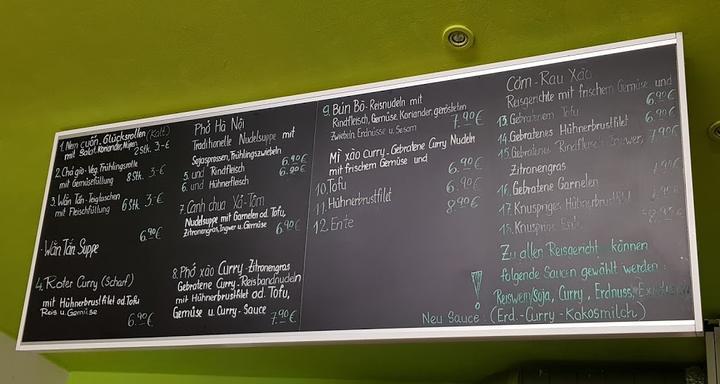 1. Nem cuốn. Glücksrollen (Kalt)
mit Salat. Koriander, Minze
2 Stk. 3-€
2. Chả giò-Veg. Frühlingsrolle
mit Gemüsefüllung 8 Stk. 3-€
3. Wàn Tán-Teigtaschen
mit Fleischfüllung 6 Stk. 3-€
6.90€
-Wàn Tán Suppe
4. Roter Curry (Scharf)
mit Hühnerbrustfilet od. Tofu
Reis u. Gemüse
6.90€
Phở Hà Nội
Traditionelle Nudelsuppe mit
Sojasprossen, Frühlingszwiebeln
5. und Rindfleisch 6.90€
6. und Hühnerfleisch 6.90€
7. Canh chua Xả-Tôm
Nudelsuppe mit Garnelen od. Tofu,
Zitronengras, Ingwer u. Gemüse 6.90€
8. Phở xào Curry-Zitronengras
Gebratene Curry-Reisbandnudeln
mit Hühnerbrustfilet od. Tofu,
Gemüse u. Curry-Sauce 7.90€
9. Bún Bò-Reisnudeln mit
Rindfleisch, Gemüse, Koriander, gerösteten
Zwiebeln, Erdnüsse u. Sesam 7.90€
Mì xào curry-Gebratene Curry Nudeln
mit frischem Gemüse und
10. Tofu 6.90€
11. Hühnerbrustfilet 6.90€
12. Ente 8.90€
Cơm-Rau Xào
Reisgerichte mit frischem Gemüse und
13 Gebratenem Tofu 6.90€
14 Gebratenes Hühnerbrustfilet 6.90€
15 Gebratenes Rindfleisch 7.90€
Zitronengras
16. Gebratene Garnelen
17. Knuspriges Hühnerbrustfilet
18. Knusprige Ente
Zu allen Reisgericht können
folgende Saucen gewählt werden:
Reiswein/Soja, Curry, Erdnuss,
! Neu Sauce: (Erd.-Curry-Kokosmilch)